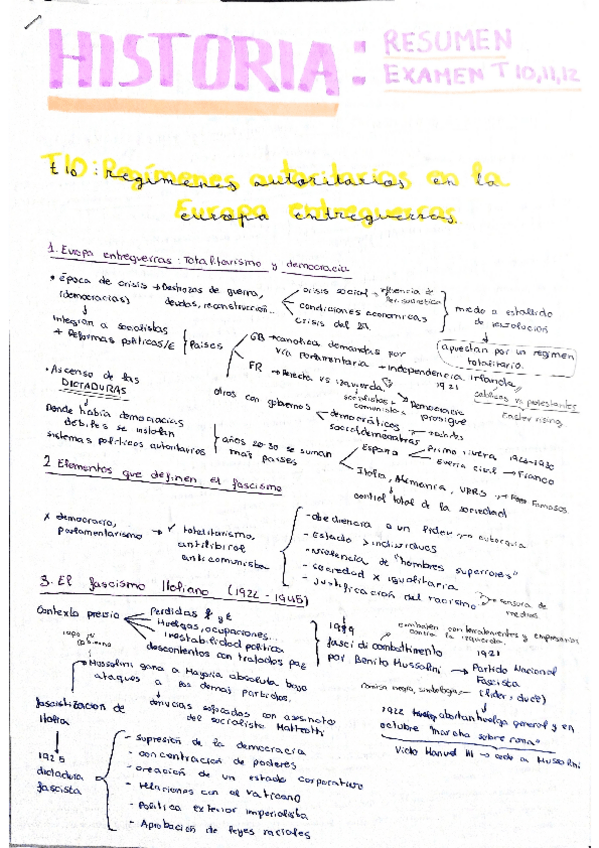 HISTORIA: RESUMEN
EXAMEN T 10,11,12
T10: Regímenes autoritarios en la
Europa entreguerras.
1. Europa entreguerras: Totalitarismo y democracia
• época de crisis → Destrozos de guerra,
(democracias) deudas, reconstrucción...
crisis social → influencia de
Rev. soviética
condiciones económicas
crisis del 29
miedo a estallido
de revolución
apuestan por un régimen
totalitario.
Integran a socialistas
+ Reformas políticas/E
Países
GB → canaliza demandas por
vía parlamentaria → independencia irlanda
1921
católicos vs protestantes
Easter rising
FR → Derecha vs izquierda
socialistas
comunistas
Democracia
prosigue
otros con gobiernos
democráticos
socialdemócratas
• Ascenso de las
DICTADURAS
Donde había democracias
débiles se instalan
sistemas políticos autoritarios
años 20-30 se suman
más países
España
Primo rivera 1923-1930
Guerra civil → Franco
Italia, Alemania, URRS → Famosos
control total de la sociedad
2 Elementos que definen el fascismo
x democracia,
parlamentarismo
→ ✓ totalitarismo,
antiliberal
anticomunista
- obediencia a un líder → autarquía
- Estado > individuos
- violencia de "hombres superiores"
- sociedad x igualitaria
- justificación del racismo
censura de
medios
3. El fascismo Italiano (1922-1945)
Contexto previo
Perdidas
Huelgas, ocupaciones...
inestabilidad política
descontentos con tratados paz
1919
fasci di combattimento
por Benito Mussolini
combaten con terratenientes y empresarios
contra la izquierda.
1921
Partido Nacional
Fascista
(líder, duce)
camisa negra, simbología
1922 abortan huelga general y en
octubre "marcha sobre roma"
Victor Manuel III → cede a Mussolini
Mussolini gana x Mayoria absoluta bajo
ataques a los demás partidos.
denuncias sofocadas con asesinato
del socialista Matteotti
fascistización de
Italia
1925
dictadura
fascista
- supresión de la democracia
- concentración de poderes
- creación de un estado corporativo
- relaciones con el vaticano
- Política exterior imperialista
- Aprobación de leyes raciales